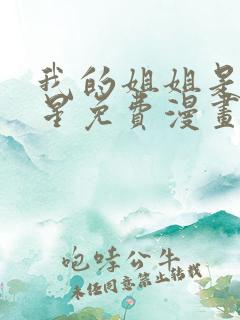 我的姐姐是
星免費漫畫
咆哮公牛
未经同意禁止转载